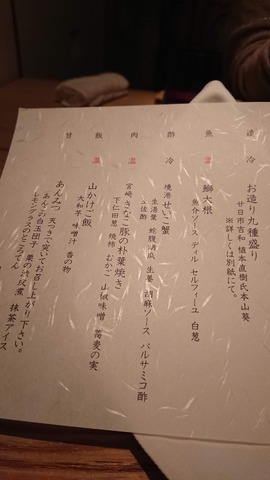 造 冷 お造り九種盛り
廿日市吉和 植本直樹氏本山葵
※詳しくは別紙にて。
魚 温 鰤大根
魚介ソース ディル セルフィーユ 白葱
酢 冷 境港せいこ蟹
生湯葉 蛇腹胡瓜 生姜 胡麻ソース バルサミコ酢
ユ浜酢
肉 温 宮崎きなこ豚の朴葉焼き
下仁田葱 焼柿 むかご 山椒味噌 蕎麦の実
飯 温 山かけご飯
大和芋 味噌汁 香の物
甘 あんみつ 天つきで突いてお召し上がり下さい。
あんこの白玉団子 栗の渋皮煮 抹茶アイス
レモングラスのところてん